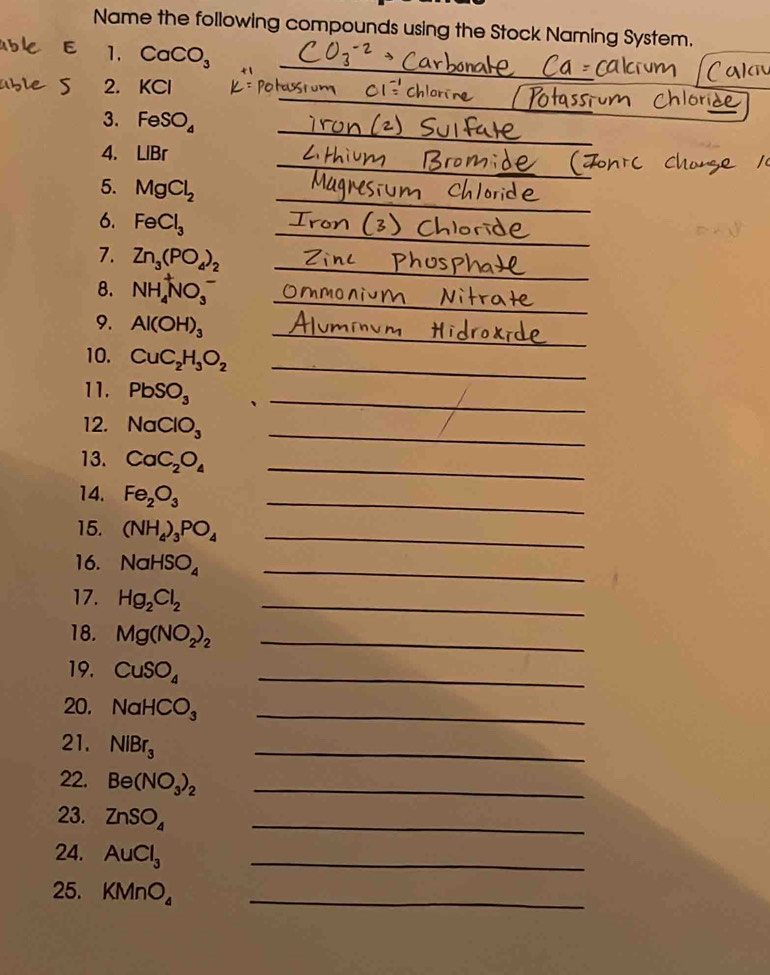 Name the following compounds using the Stock Naming System.
able E 1. CaCO₃ CO₃⁻² → Carbonate Ca = calcium
able S 2. KCl K⁺¹ = Potassium Cl⁻¹ = chlorine Potassium Chloride
3. FeSO₄ iron (2) Sulfate
4. LiBr Lithium Bromide (Ionic change
5. MgCl₂ Magnesium Chloride
6. FeCl₃ Iron (3) Chloride
7. Zn₃(PO₄)₂ Zinc Phosphate
8. NH₄⁺NO₃⁻ Ommonium Nitrate
9. Al(OH)₃ Aluminum Hidroxide
10. CuC₂H₃O₂
11. PbSO₃
12. NaClO₃
13. CaC₂O₄
14. Fe₂O₃
15. (NH₄)₃PO₄
16. NaHSO₄
17. Hg₂Cl₂
18. Mg(NO₂)₂
19. CuSO₄
20. NaHCO₃
21. NiBr₃
22. Be(NO₃)₂
23. ZnSO₄
24. AuCl₃
25. KMnO₄